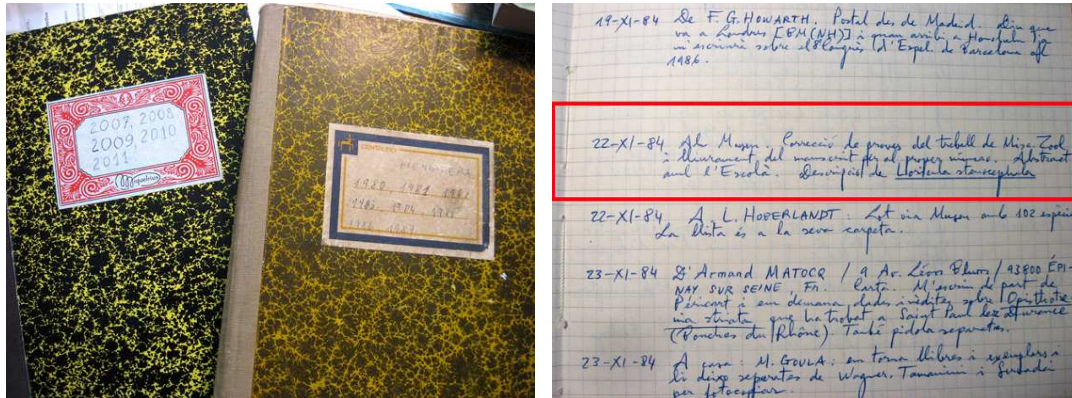 2007, 2008,
2009, 2010
2011
Miquelrius
CENTAURO
1980, 1981, 1982
1983, 1984, 1985
1986, 1987
19-XI-84 De F. G. HOWARTH. Postal des de Madrid. Diu que
va a Londres [BM(NH)] i quan arribi a Honolulu ja
m'escriurà sobre el Congrés d'Espel. de Barcelona del
1986.
22-XI-84 Al Museu. Correcció de proves del treball de Misc. Zool.
i lliurament del manuscrit per al proper número.
amb l'Escolà. Descripció de
22-XI-84 A L. HOBERLANDT: Lot via Museu amb 102 espècies
La llista és a la seva carpeta.
23-XI-84 D'Armand MATOCQ / 9 Av. Léon Blum / 93800 ÉPI-
NAY SUR SEINE, Fr. Carta. M'escriu de part de
Péricart i em demana dades inèdites sobre
que ha trobat a Saint Paul lez Durance
(Bouches du Rhône) També pidola separates.
23-XI-84 A casa: M. GOULA: em torna llibres i exemplars i
li deixo separates de Wagner, Tamanini i Servadei
per fotocopiar.